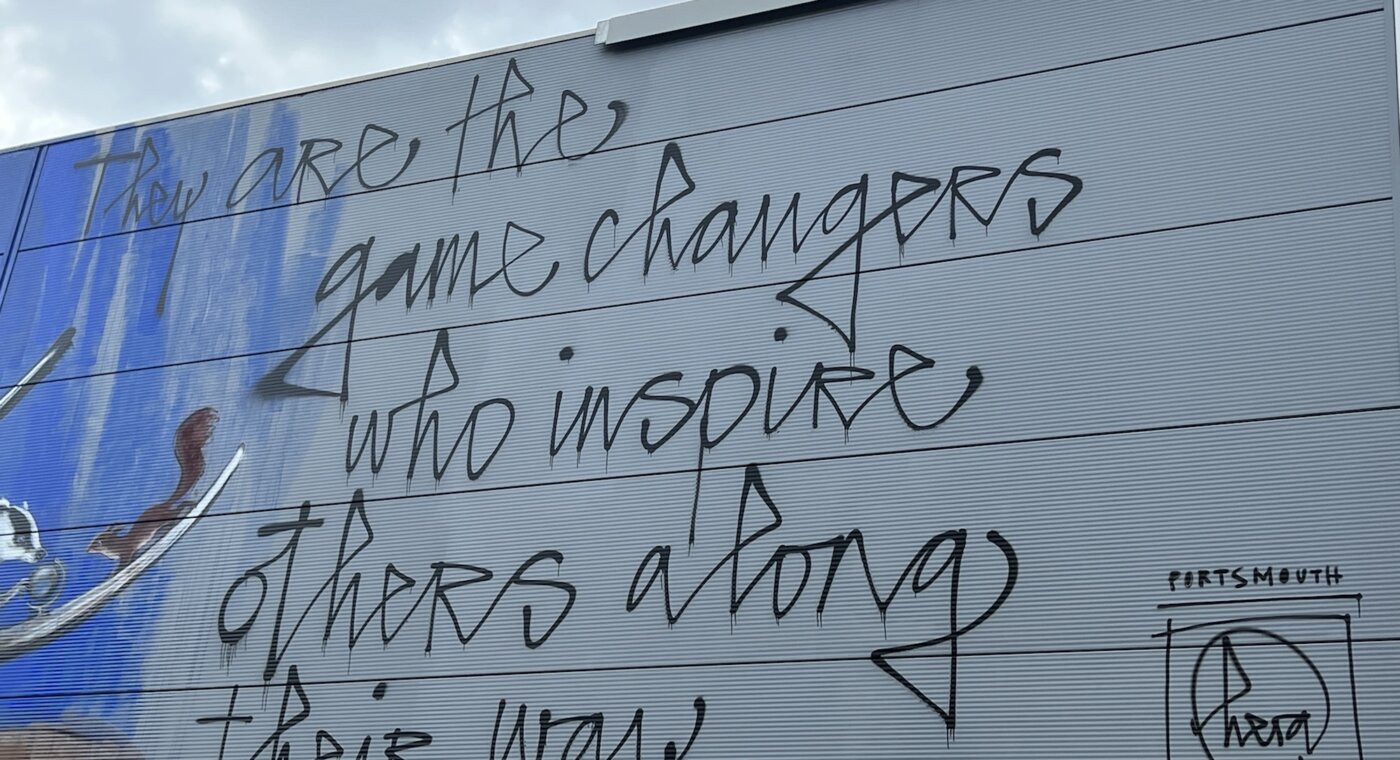 They are the
game changers
who inspire
others along
their way
PORTSMOUTH
hera